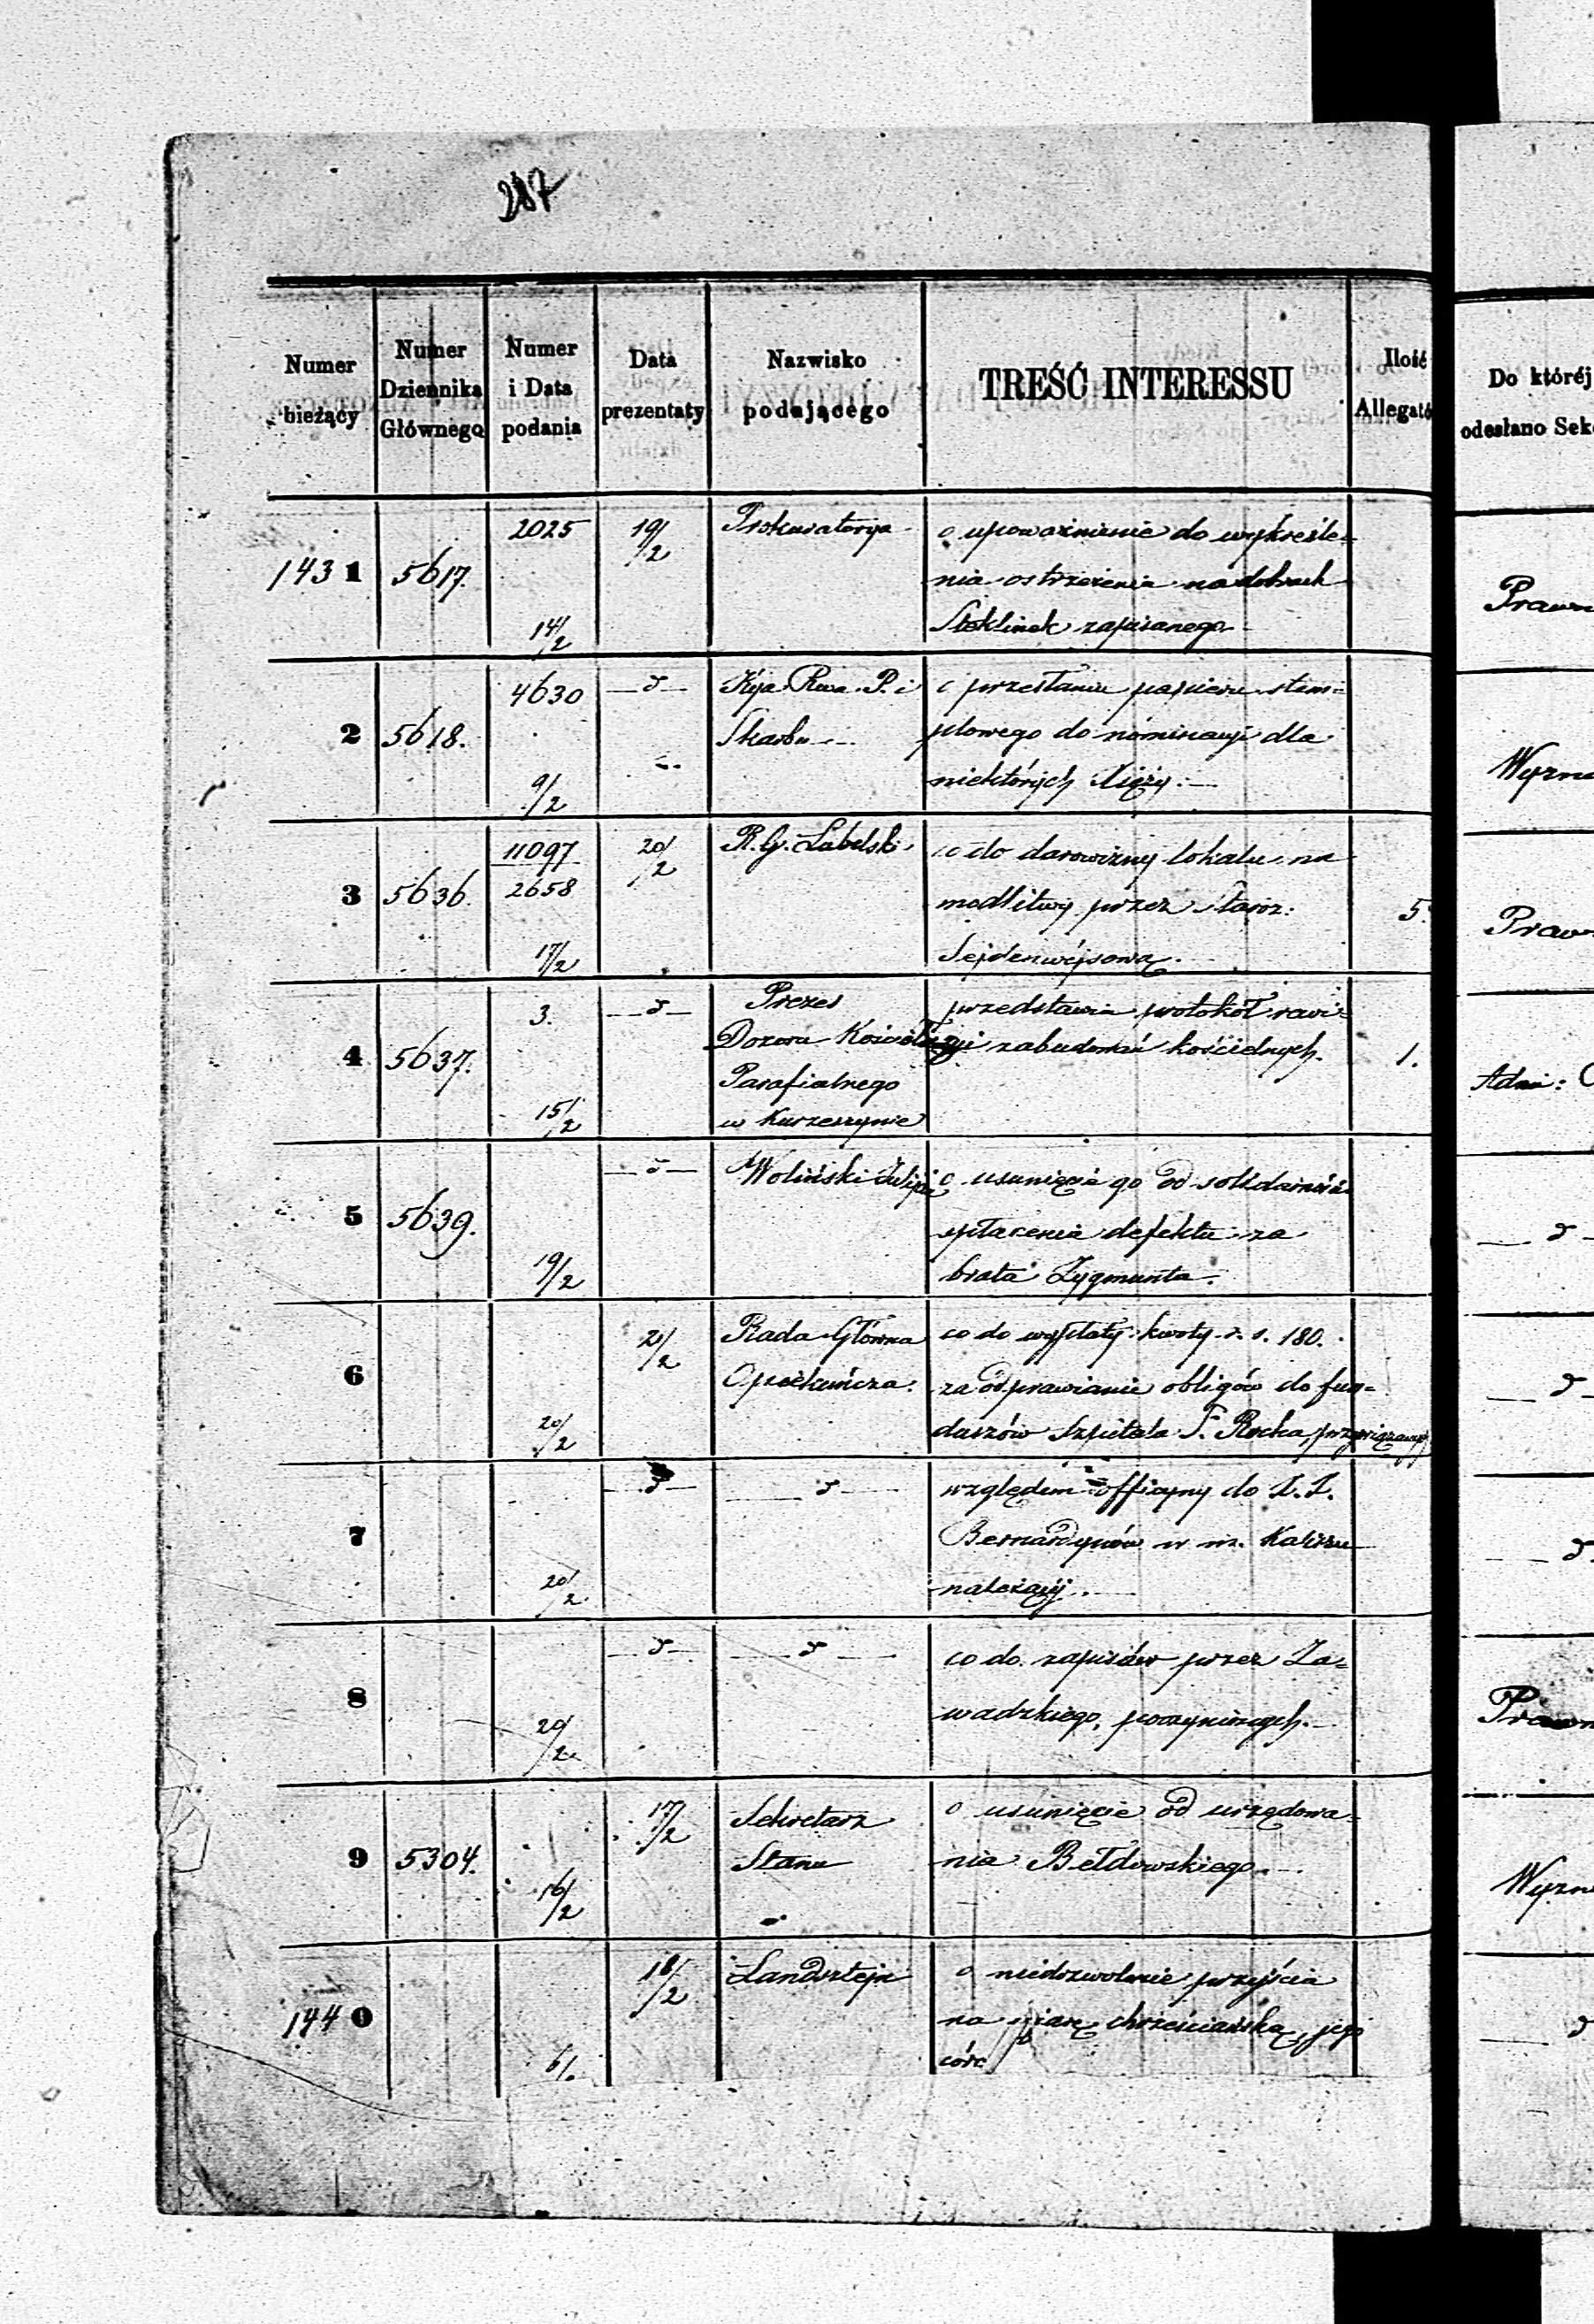 287
Numer bieżący
Numer Dziennika Głównego
Numer i Data podania
Data prezentaty
Nazwisko podającego
TREŚĆ INTERESSU
Ilość Allegató
Do której odesłano Sek
1431
5617.
2025
14/2
19/2
Prokuratorya
o upoważnienie do wykreśle=
nia ostrzeżenia na dobrach
zapisanego
Prawn
2
5618.
4630
9/2
— d —
Kźja Rwa. P. i
Skarbu
o przesłanie papieru stem=
plowego do nominacyi dla
niektórych Xięży. —
Wyzna
3
5636.
11097
2658
17/2
20/2
R. G. Lubelski
co do darowizny lokalu na
modlitwy przez Staroz:
Sejdenwejsową.
5.
Praw
4
5637.
3.
15/2
— d —
Prezes
Dozoru Kościoła
Parafialnego
w Kurzeszynie
przedstawia protokół rewi=
zyi zabudowań kościelnych.
1.
Adm:
5
5639.
19/2
— d —
Woliński
o usunięcie go od
spłacenia defektu za
brata Zygmunta.
— d
6
20/2
21/2
Rada Główna
Opiekuńcza.
co do wypłaty kwoty r. s. 180.
za odprawianie obligów do fun=
duszów Szpitala Ś. Rocha
— d
7
20/2
— d —
— d —
względem officyny do X. X.
Bernardynów w m. Kaliszu
należącej.
— d
8
20/2
— d —
— d —
co do zapisów przez Za=
wadzkiego, poczynionych. —
Prawn
9
5304.
16/2
17/2
Sekretarz
Stanu
o usunięcie od urzędowa=
nia Bełdowskiego. —
Wyzn
1440
6/.
18/2
Landsztejn
o niedozwolenie przejścia
na wiarę chrześciańską, jego
córc
— d